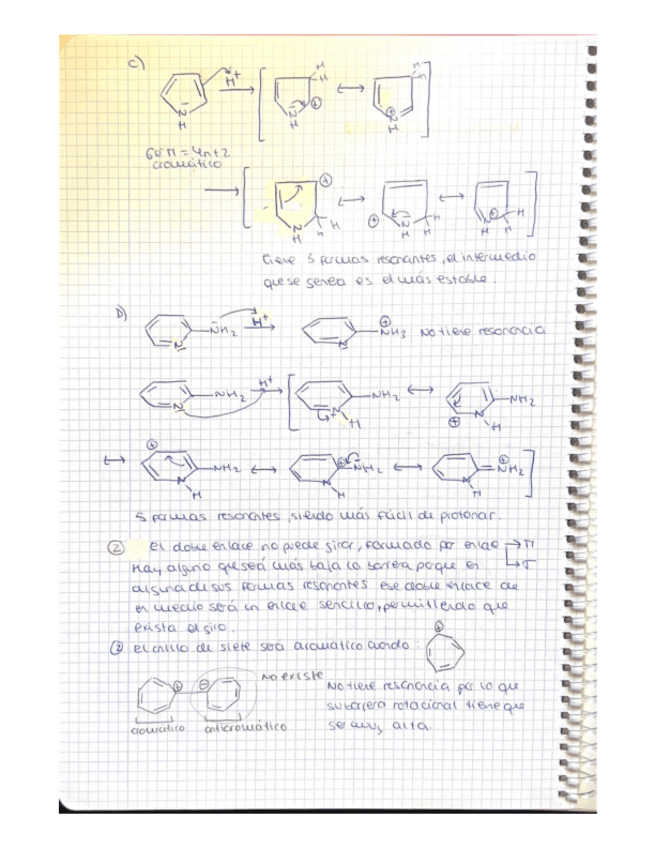 c)
H+
H
H
⊕
N
H
6e⁻π = 4n+2
aromático
⊕
N
H
Tiene 3 formas resonantes, el intermedio
que se genea es el más estable.
D)
NH2 H+ ⊕ NH3 No tiene resonancia
N N
NH2 H+ NH2 NH2
N N H ⊕ N H
⊕ NH2 ⊕ NH2 ⊕ NH2
N H N H N H
5 formas resonantes, siendo más fácil de protonar.
② El doble enlace no puede girar, formado por enlace → π
Hay alguno que será más baja la barrera porque en → σ
alguna de sus formas resonantes ese doble enlace de
en medio será un enlace sencillo, permitiendo que
exista el giro.
② El anillo de siete será aromático cuando: ⊕
⊕ ⊖ No existe
No tiene resonancia por lo que
su barrera rotacional tiene que
ser muy alta.
aromático antiaromático